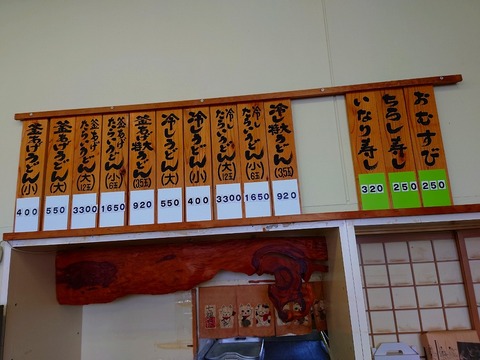 おむすび
250
ちらし寿し
250
いなり寿し
320
冷し特大うどん(3.5玉)
920
冷したらいうどん(小6玉)
1650
冷したらいうどん(大12玉)
3300
冷しうどん(小)
400
冷しうどん(大)
550
釜あげ特大うどん(3.5玉)
920
釜あげたらいうどん(小6玉)
1650
釜あげたらいうどん(大12玉)
3300
釜あげうどん(大)
550
釜あげうどん(小)
400